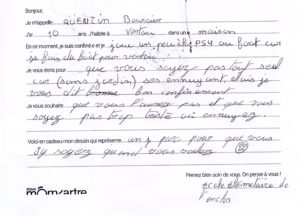 Bonjour,
Je m'appelle QUENTIN
J'ai 10 ans. J'habite à Vertou dans une maison
En ce moment, je suis confiné et je joue un peu de PSY au foot sur
le foot pour
Je vous écris pour que vous soyez pas tout seul
car (sans jardin) ses ennuyant. Alors je
vous dit bon confinement
Je vous souhaite que vous l' pas et que vous
soyez pas trop triste ou ennuyez.
Voici en cadeau mon dessin qui représente un parc pour que vous
y soyez quand vous voulez
Prenez bien soin de vous. On pense à vous !
môm'artre
école élémentaire de
l'enclos